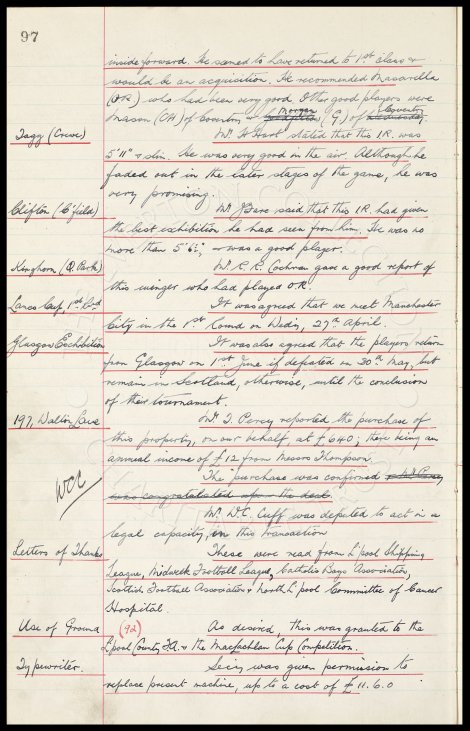 97
inside forward. He seemed to have returned to 1st class &
would be an acquisition. He recommended Masarella
(OR.) who had been very good. Other good players were
Mason (CH) of Coventry & Morgan (G.) of Coventry
Tagg (Crewe) Mr. H. Hart stated that this I.R. was
5'11" & slim. He was very good in the air. Although he
faded out in the later stages of the game, he was
very promising.
Clifton (C'field) Mr. J. Gare said that this I.R. had given
the best exhibition he had seen from him. He was no
more than 5'6½, & was a good player.
Kinghorn (Q. Park) Mr. R. R. Cochran gave a good report of
this winger who had played O.R.
Lancs Cup, 1st Rd It was agreed that we meet Manchester
City in the 1st Round on Wedy, 27th April.
Glasgow Exchbition It was also agreed that the players return
from Glasgow on 1st June if defeated on 30th May, but
remain in Scotland, otherwise, until the conclusion
of their tournament.
197, Walton Lane Mr. T. Percy reported the purchase of
this property, on our behalf at £640; there being an
annual income of £12 from Messrs Thompson.
The purchase was confirmed & Mr Percy
was congratulated upon the deal.
WCC
Mr. W.C. Cuff was deputed to act in a
legal capacity, in this transaction
Letters of Thanks These were read from L'pool Shipping
League, Midweek Football League, Catholic Boys Association,
Scottish Football Association & North L'pool Committee of Cancer
Hospital.
Use of Ground (92) As desired, this was granted to the
L'pool County F.A. & the Macfachlan Cup Competition.
Typewriter. Secy was given permission to
replace present machine, up to a cost of £11.6.0